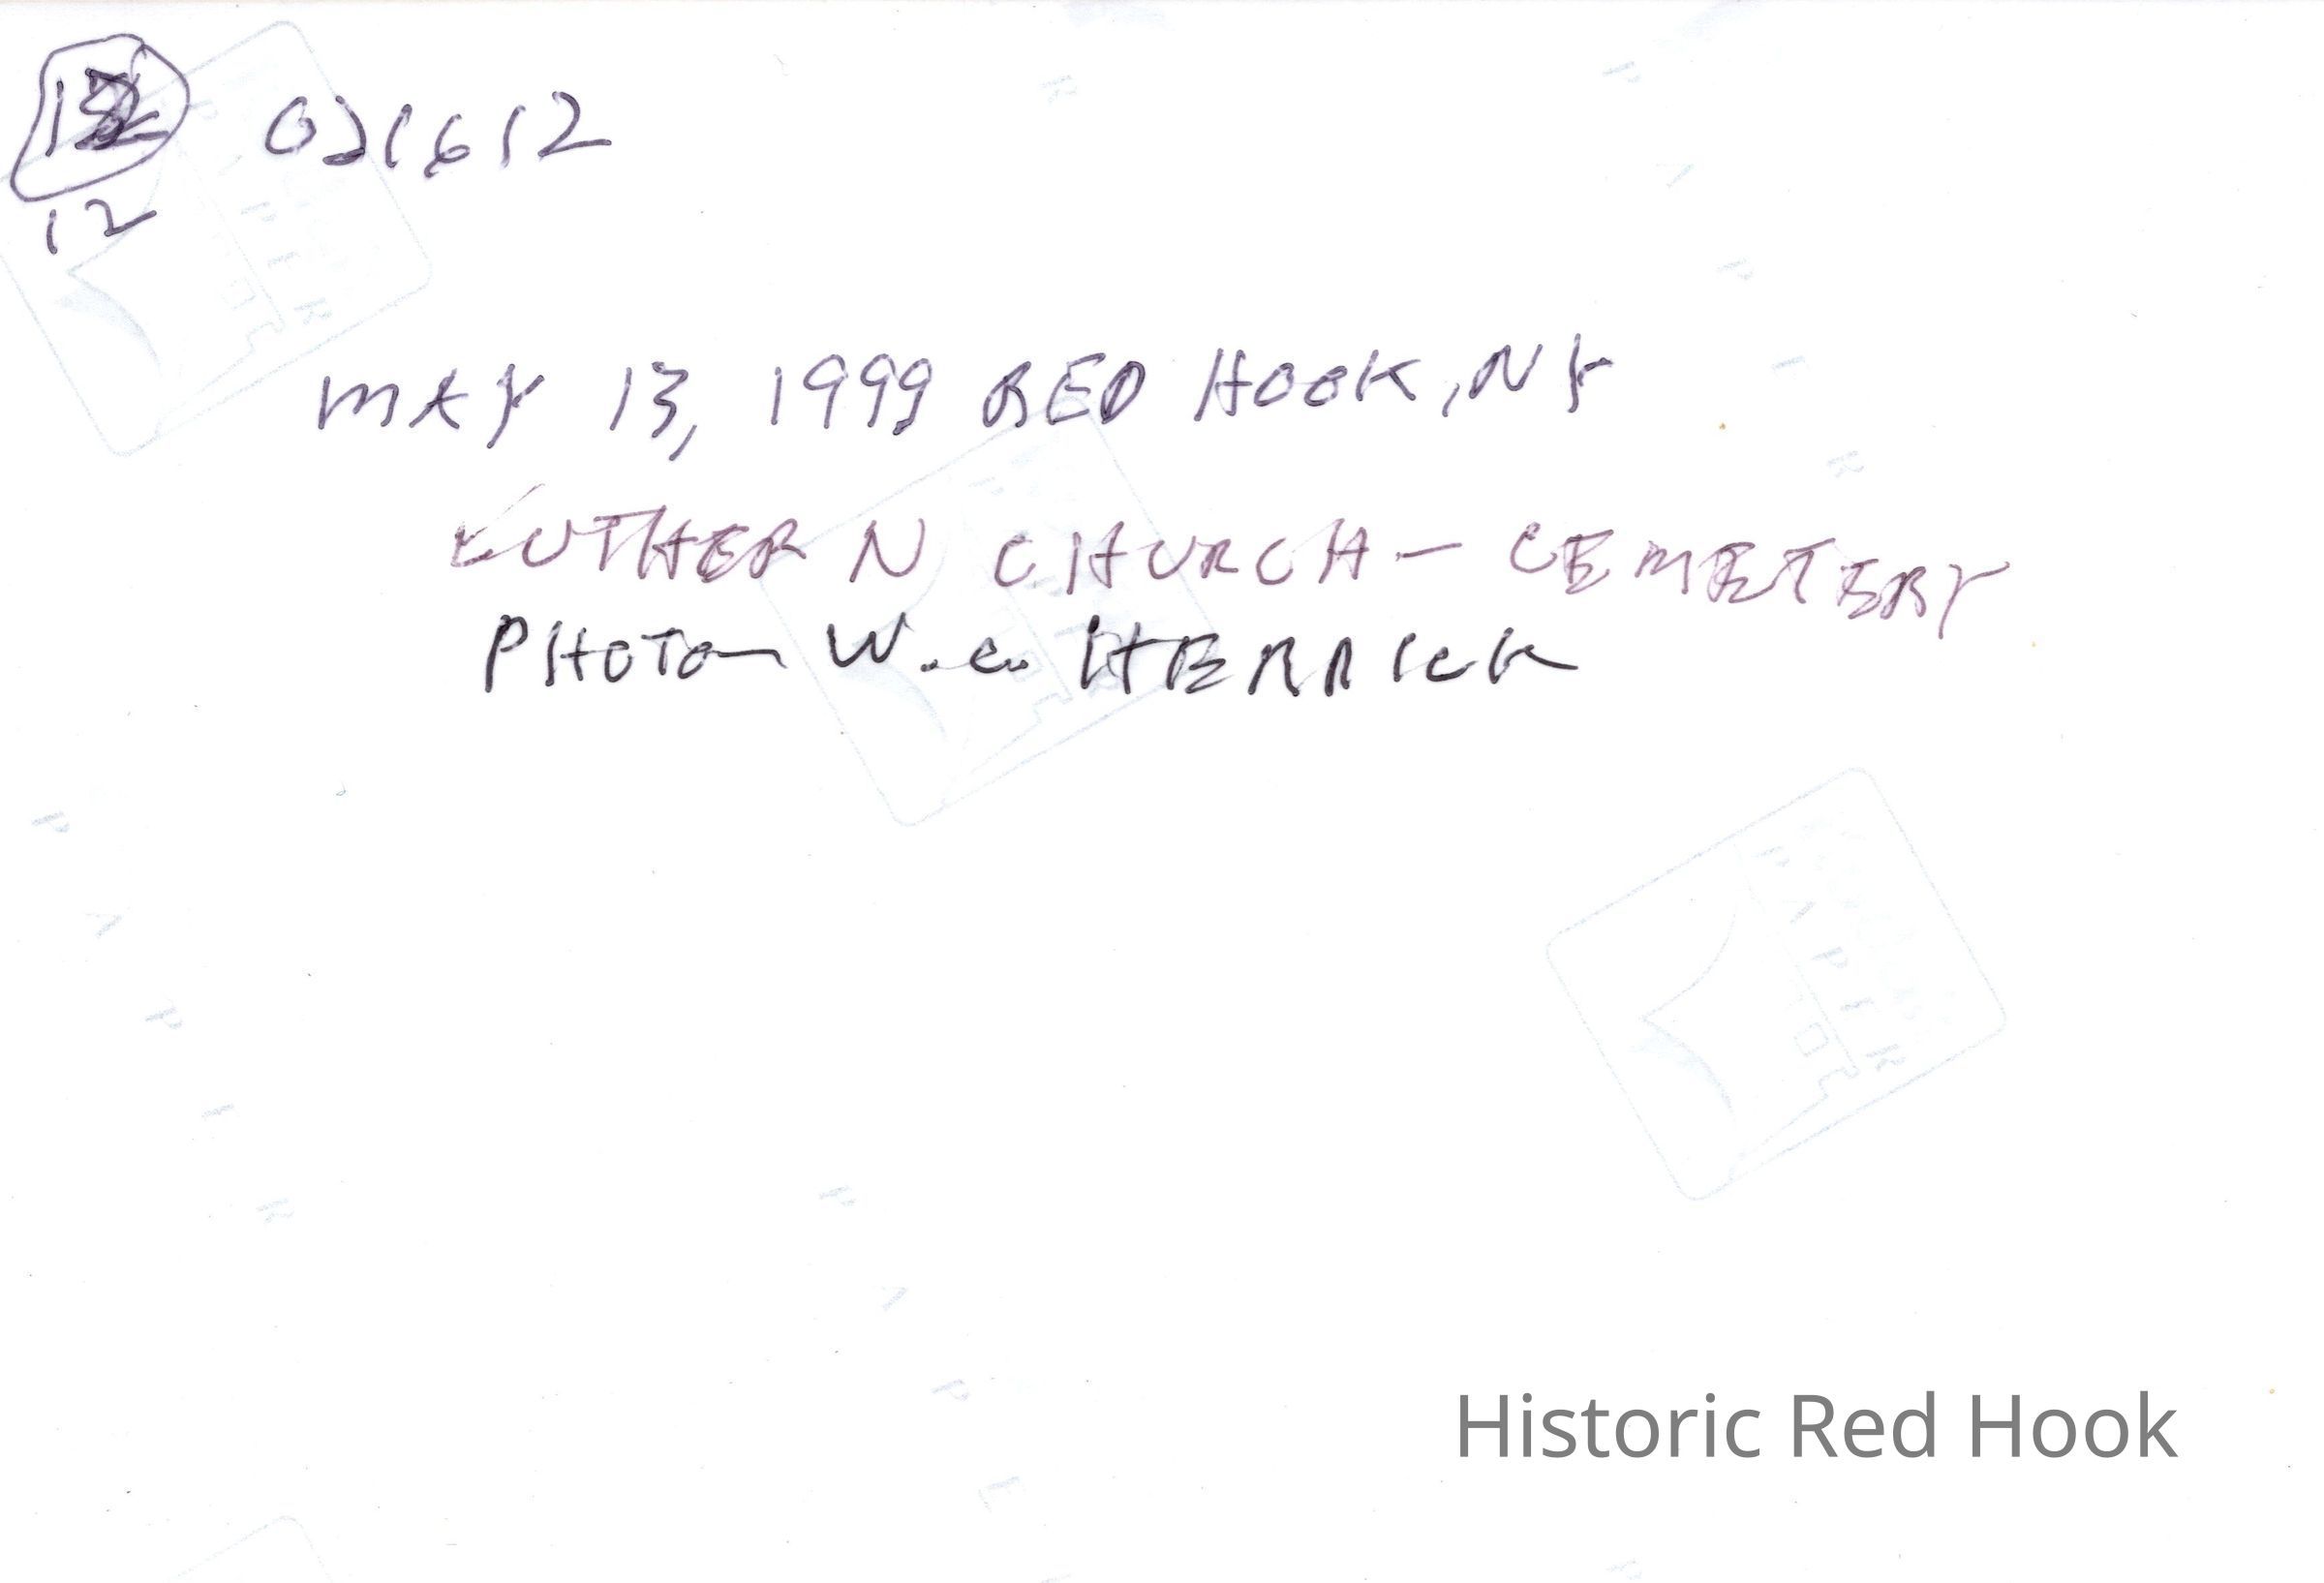 12 021612
12
MAY 13, 1999 RED HOOK, NY
LUTHER N CHURCH - CEMETERY
PHOTO - W.C. HERRICK
Historic Red Hook